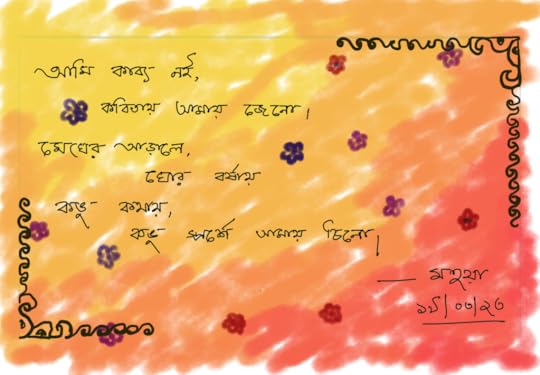 আমি কাব্য নই,
কবিতায় আমায় জেনো।
মেঘের আড়ালে,
ঘোর বর্ষায়
কভু কথায়,
কভু স্পর্শে আমায় চিনো।
— মহুয়া